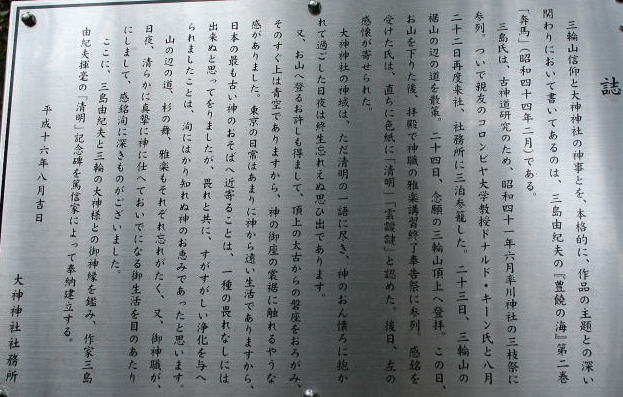 誌
三輪山信仰と大神神社の神事とを、本格的に、作品の主題との深い
関わりにおいて書いてあるのは、三島由紀夫の『豊饒の海』第二巻
「奔馬」(昭和四十四年二月)である。
三島氏は、古神道研究のため、昭和四十一年六月率川神社の三枝祭に
参列。ついで親友のコロンビヤ大学教授ドナルド・キーン氏と八月
二十二日再度来社。社務所に三泊参籠した。二十三日、三輪山の
裾山の辺の道を散策。二十四日、念願の三輪山頂上へ登拝。この日、
お山を下りた後、拝殿で神職の雅楽講習終了奉告祭に参列。感銘を
受けた氏は、直ちに色紙に「清明」「雲靉靆」と認めた。後日、左の
感懐が寄せられた。
大神神社の神域は、ただ清明の一語に尽き、神のおん懐ろに抱か
れて過ごした日夜は終生忘れえぬ思ひ出であります。
又、お山へ登るお許しも得まして、頂上の太古からの磐座をおろがみ、
そのすぐ上は青空でありますから、神の御座の裳裾に触れるやうな
感がありました。東京の日常はあまりに神から遠い生活でありますから、
日本の最も古い神のおそばへ近寄ることは、一種の畏れなしには
出来ぬと思ってをりましたが、畏れと共に、すがすがしい浄化を与へ
られましたことは、洵にはかり知れぬ神のお恵みであったと思います。
山の辺の道、杉の舞、雅楽もそれぞれ忘れがたく、又、御神職が、
日夜、清らかに真摯に神に仕へておいでになる御生活を目のあたり
にしまして、感銘洵に深きものがございました。
ここに、三島由紀夫と三輪の大神様との御神縁を鑑み、作家三島
由紀夫揮毫の「清明」記念碑を篤信家によって奉納建立する。
平成十六年八月吉日
大神神社社務所